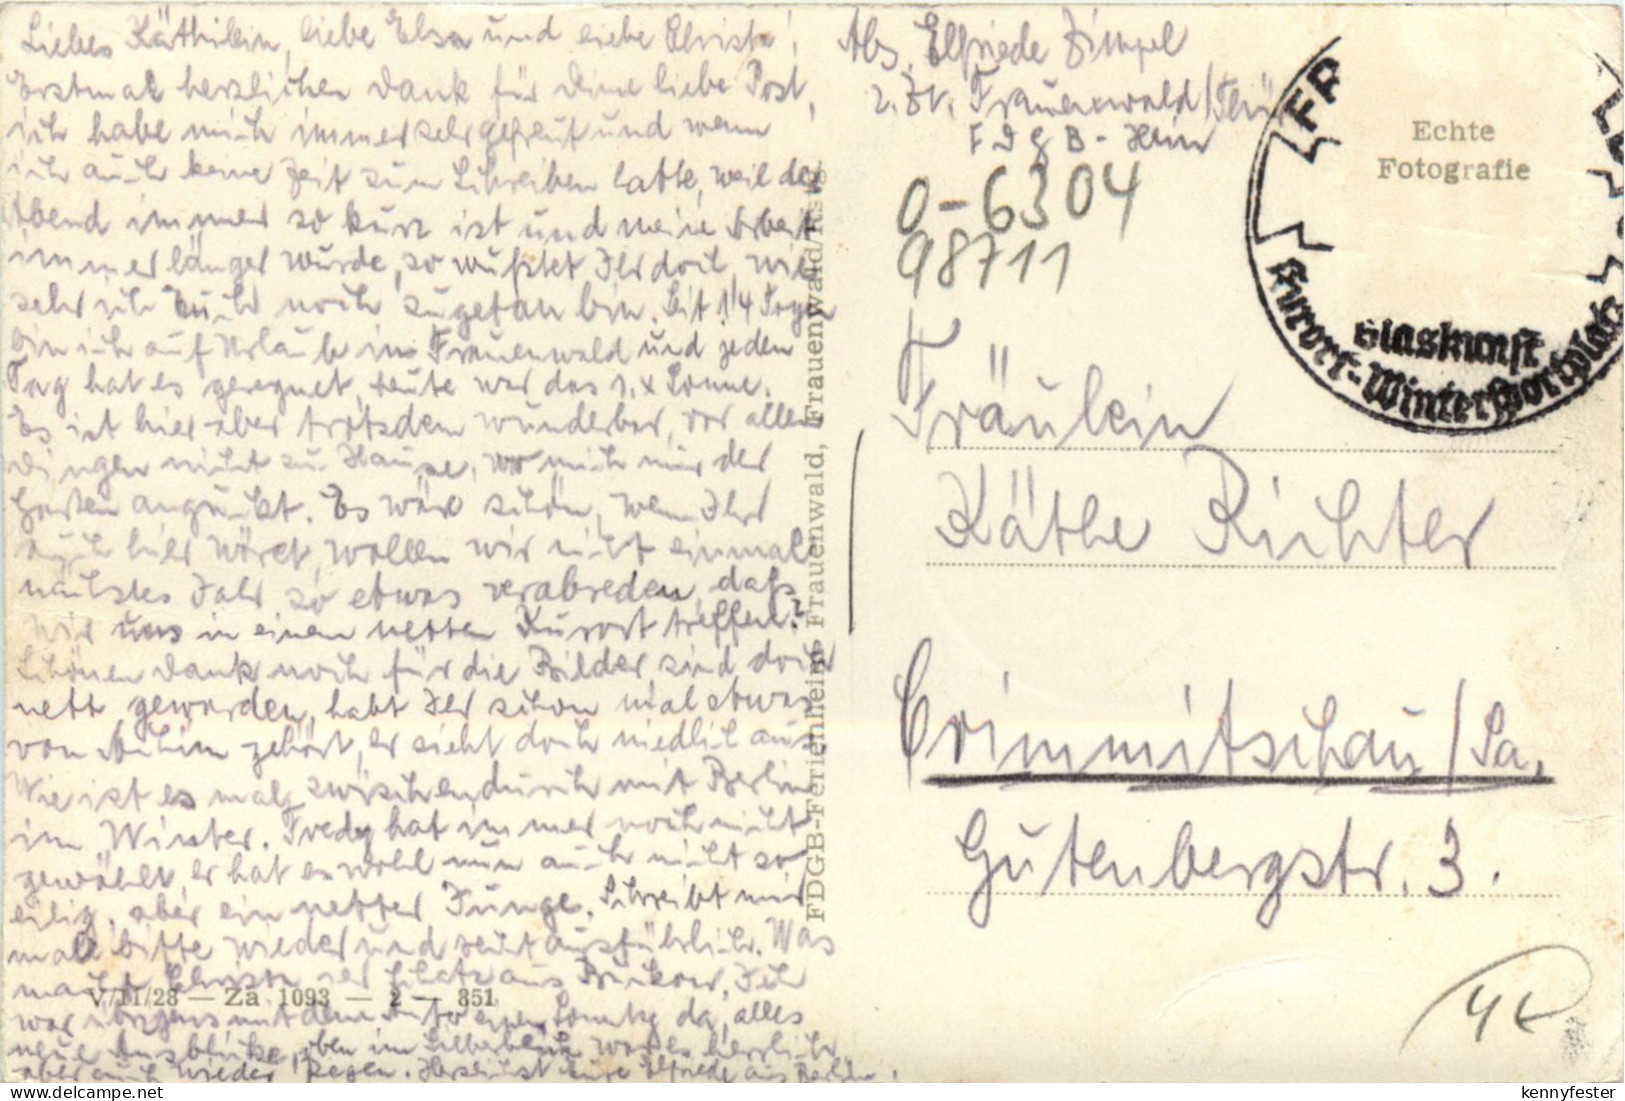 Liebes Käthilein, liebe Elsa und liebe Christa!
Erstmal herzlichen Dank für Deine liebe Post,
ich habe mich immer sehr gefreut und wenn
ich auch keine Zeit zum Schreiben hatte, weil der
Abend immer so kurz ist und meine Arbeit
immer länger wurde, so wußtet Ihr doch, wie
sehr ich Euch noch zugetan bin. Seit 14 Tagen
bin ich auf Urlaub in Frauenwald und jeden
Tag hat es geregnet, heute war das 1. x Sonne.
Es ist hier aber trotzdem wunderbar, vor allen
Dingen nicht zu Hause, wo mich nur der
Garten anguckt. Es wär schön, wenn Ihr
auch hier wäret, wollen wir nicht einmal
nächstes Jahr so etwas verabreden, daß
wir uns in einem netten Kurort treffen?
Schönen Dank noch für die Bilder, sind doch
nett geworden, habt Ihr schon mal etwas
von gehört, er sieht doch niedlich aus
Wie ist es mal zwischendurch mit Berlin
im Winter. Fredy hat immer noch nicht
gewählt, er hat es wohl nun auch nicht so
eilig, aber ein netter Junge. Schreibt mir
mal bitte wieder und recht ausführlich. Was
macht Christa, der Schatz aus Buckow, Ich
war übrigens mit dem Auto einen Sonntag da, alles
neue Ausblicke, oben im war es herrlich
aber auch wieder Regen. Herzlichst Eure Elfriede aus Berlin.
V/11/28 — Za 1093 — 2 — 851
FDGB-Ferienheim Frauenwald, Frauenwald/Rstg.
Abs. Elfriede Zimpel
z. Zt. Frauenwald/Thü
FDGB-Heim
0-6304
98711
Echte
Fotografie
FR
Glaskunst
Kurort-Wintersportplatz
Fräulein
Käthe Richter
Crimmitschau/Sa.
Gutenbergstr. 3.
4€
kennyfester